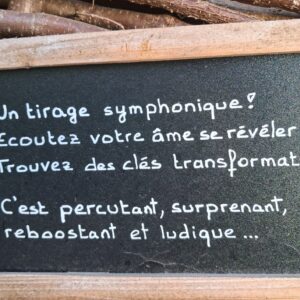 Un tirage symphonique !
Ecoutez votre âme se révéler
Trouvez des clés transformat
C'est percutant, surprenant,
reboostant et ludique ...